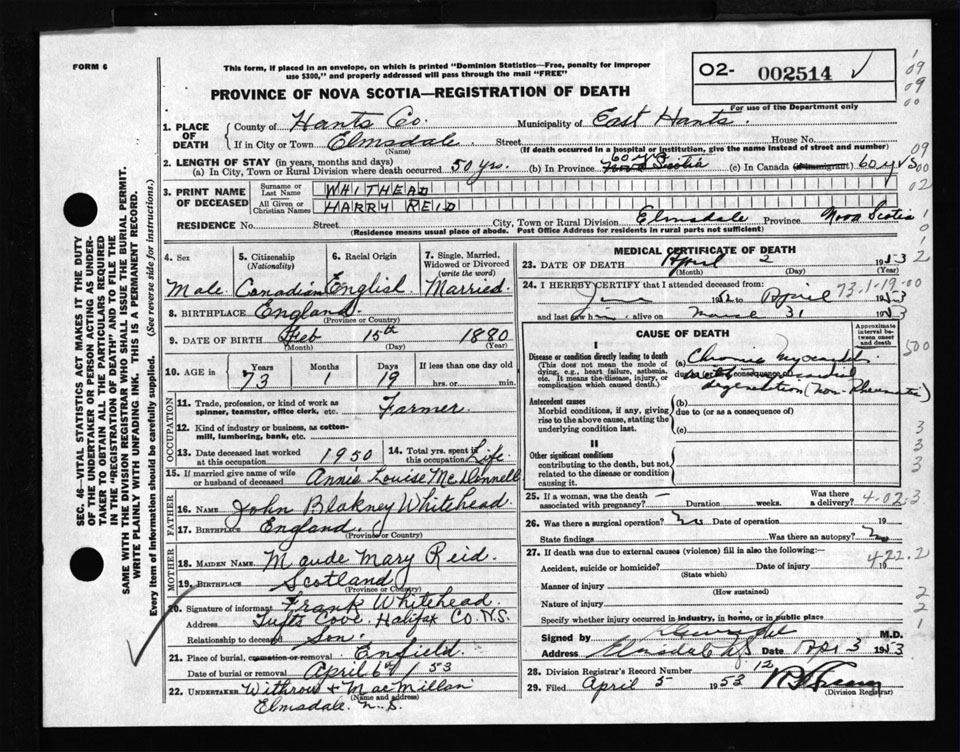 FORM 6
This form, if placed in an envelope, on which is printed "Dominion Statistics—Free, penalty for improper
use $300," and properly addressed will pass through the mail "FREE"
O2- 002514 ✓
For use of the Department only
PROVINCE OF NOVA SCOTIA—REGISTRATION OF DEATH
1. PLACE OF DEATH County of Hants Co. Municipality of East Hants
If in City or Town Elmsdale (Name) Street House No.
(If death occurred in a hospital or institution, give the name instead of street and number)
2. LENGTH OF STAY (in years, months and days)
(a) In City, Town or Rural Division where death occurred 50 yrs. (b) In Province 60 yrs Nova Scotia (c) In Canada (if immigrant) 60 yrs
3. PRINT NAME OF DECEASED
Surname or Last Name WHITHEAD
All Given or Christian Names HARRY REID
RESIDENCE No. Street City, Town or Rural Division Elmsdale Province Nova Scotia
(Residence means usual place of abode. Post Office Address for residents in rural parts not sufficient)
SEC. 46—VITAL STATISTICS ACT MAKES IT THE DUTY
OF THE UNDERTAKER OR PERSON ACTING AS UNDER-
TAKER TO OBTAIN ALL THE PARTICULARS REQUIRED
IN THE "REGISTRATION OF DEATH" AND TO FILE THE
SAME WITH THE DIVISION REGISTRAR WHO SHALL ISSUE THE BURIAL PERMIT.
WRITE PLAINLY WITH UNFADING INK. THIS IS A PERMANENT RECORD.
Every item of information should be carefully supplied. (See reverse side for instructions.)
4. Sex Male
5. Citizenship (Nationality) Canadian
6. Racial Origin English
7. Single, Married, Widowed or Divorced (write the word) Married
8. BIRTHPLACE England (Province or Country)
9. DATE OF BIRTH Feb 15th 1880
(Month) (Day) (Year)
10. AGE in Years 73 Months 1 Days 19 If less than one day old hrs. or min.
OCCUPATION
11. Trade, profession, or kind of work as spinner, teamster, office clerk, etc. Farmer
12. Kind of industry or business, as cotton-mill, lumbering, bank, etc.
13. Date deceased last worked at this occupation 1950 14. Total yrs. spent in this occupation Life
15. If married give name of wife or husband of deceased Annie Louise McDonnell
FATHER
16. Name John Blakney Whitehead
17. Birthplace England (Province or Country)
MOTHER
18. MAIDEN NAME Maude Mary Reid
19. BIRTHPLACE Scotland (Province or Country)
20. Signature of informant Frank Whitehead
Address Tufts Cove Halifax Co. N.S.
Relationship to deceased Son
21. Place of burial, cremation or removal Enfield
Date of burial or removal April 6th 1953
22. UNDERTAKER Withrow + MacMillan
(Name and address)
Elmsdale N.S.
MEDICAL CERTIFICATE OF DEATH
23. DATE OF DEATH April 2 1953
(Month) (Day) (Year)
24. I HEREBY CERTIFY that I attended deceased from:
19 to April 1953
73-1-19-00
and last saw h im alive on March 31 1953
CAUSE OF DEATH
Approximate interval between onset and death
I
Disease or condition directly leading to death
(This does not mean the mode of dying, e.g., heart failure, asthenia, etc. It means the disease, injury, or complication which caused death)
(a) Chronic
due to (or as a consequence of)
degeneration (non-Rheumatic)
Antecedent causes
Morbid conditions, if any, giving rise to the above cause, stating the underlying condition last.
(b)
due to (or as a consequence of)
(c)
II
Other significant conditions
contributing to the death, but not related to the disease or condition causing it.
25. If a woman, was the death associated with pregnancy? Duration weeks. Was there a delivery?
4-02.3
26. Was there a surgical operation? No Date of operation 19
State findings Was there an autopsy? No
27. If death was due to external causes (violence) fill in also the following:
422.2
Accident, suicide or homicide? Date of injury 19
(State which)
Manner of injury
(How sustained)
Nature of injury
Specify whether injury occurred in industry, in home, or in public place
Signed by M.D.
Address Elmsdale N.S. Date Apr 3 1953
28. Division Registrar's Record Number 12
29. Filed April 5 1953
(Division Registrar)